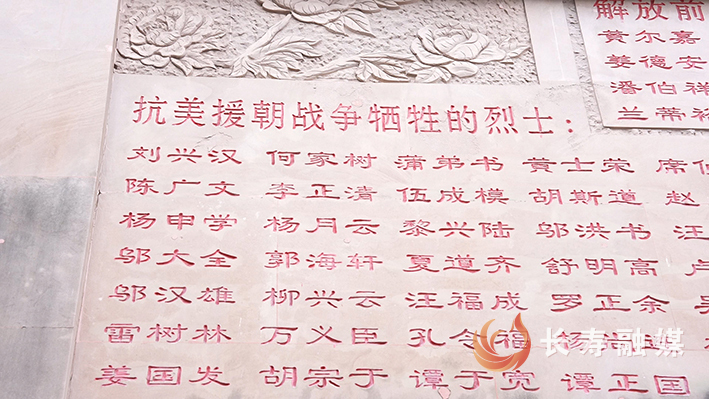 抗美援朝战争牺牲的烈士：
刘兴汉 何家树 蒲弟书 黄士荣 席
陈广文 李正清 伍成模 胡斯道 赵
杨申学 杨月云 黎兴陆 邬洪书 汪
邬大全 郭海轩 夏道齐 舒明高
邬汉雄 柳兴云 汪福成 罗正余
雷树林 万义臣 孔令福
姜国发 胡宗于 谭于宽 谭正国
解放前
黄尔嘉
姜德安
潘伯祥
兰蒂
长寿融媒